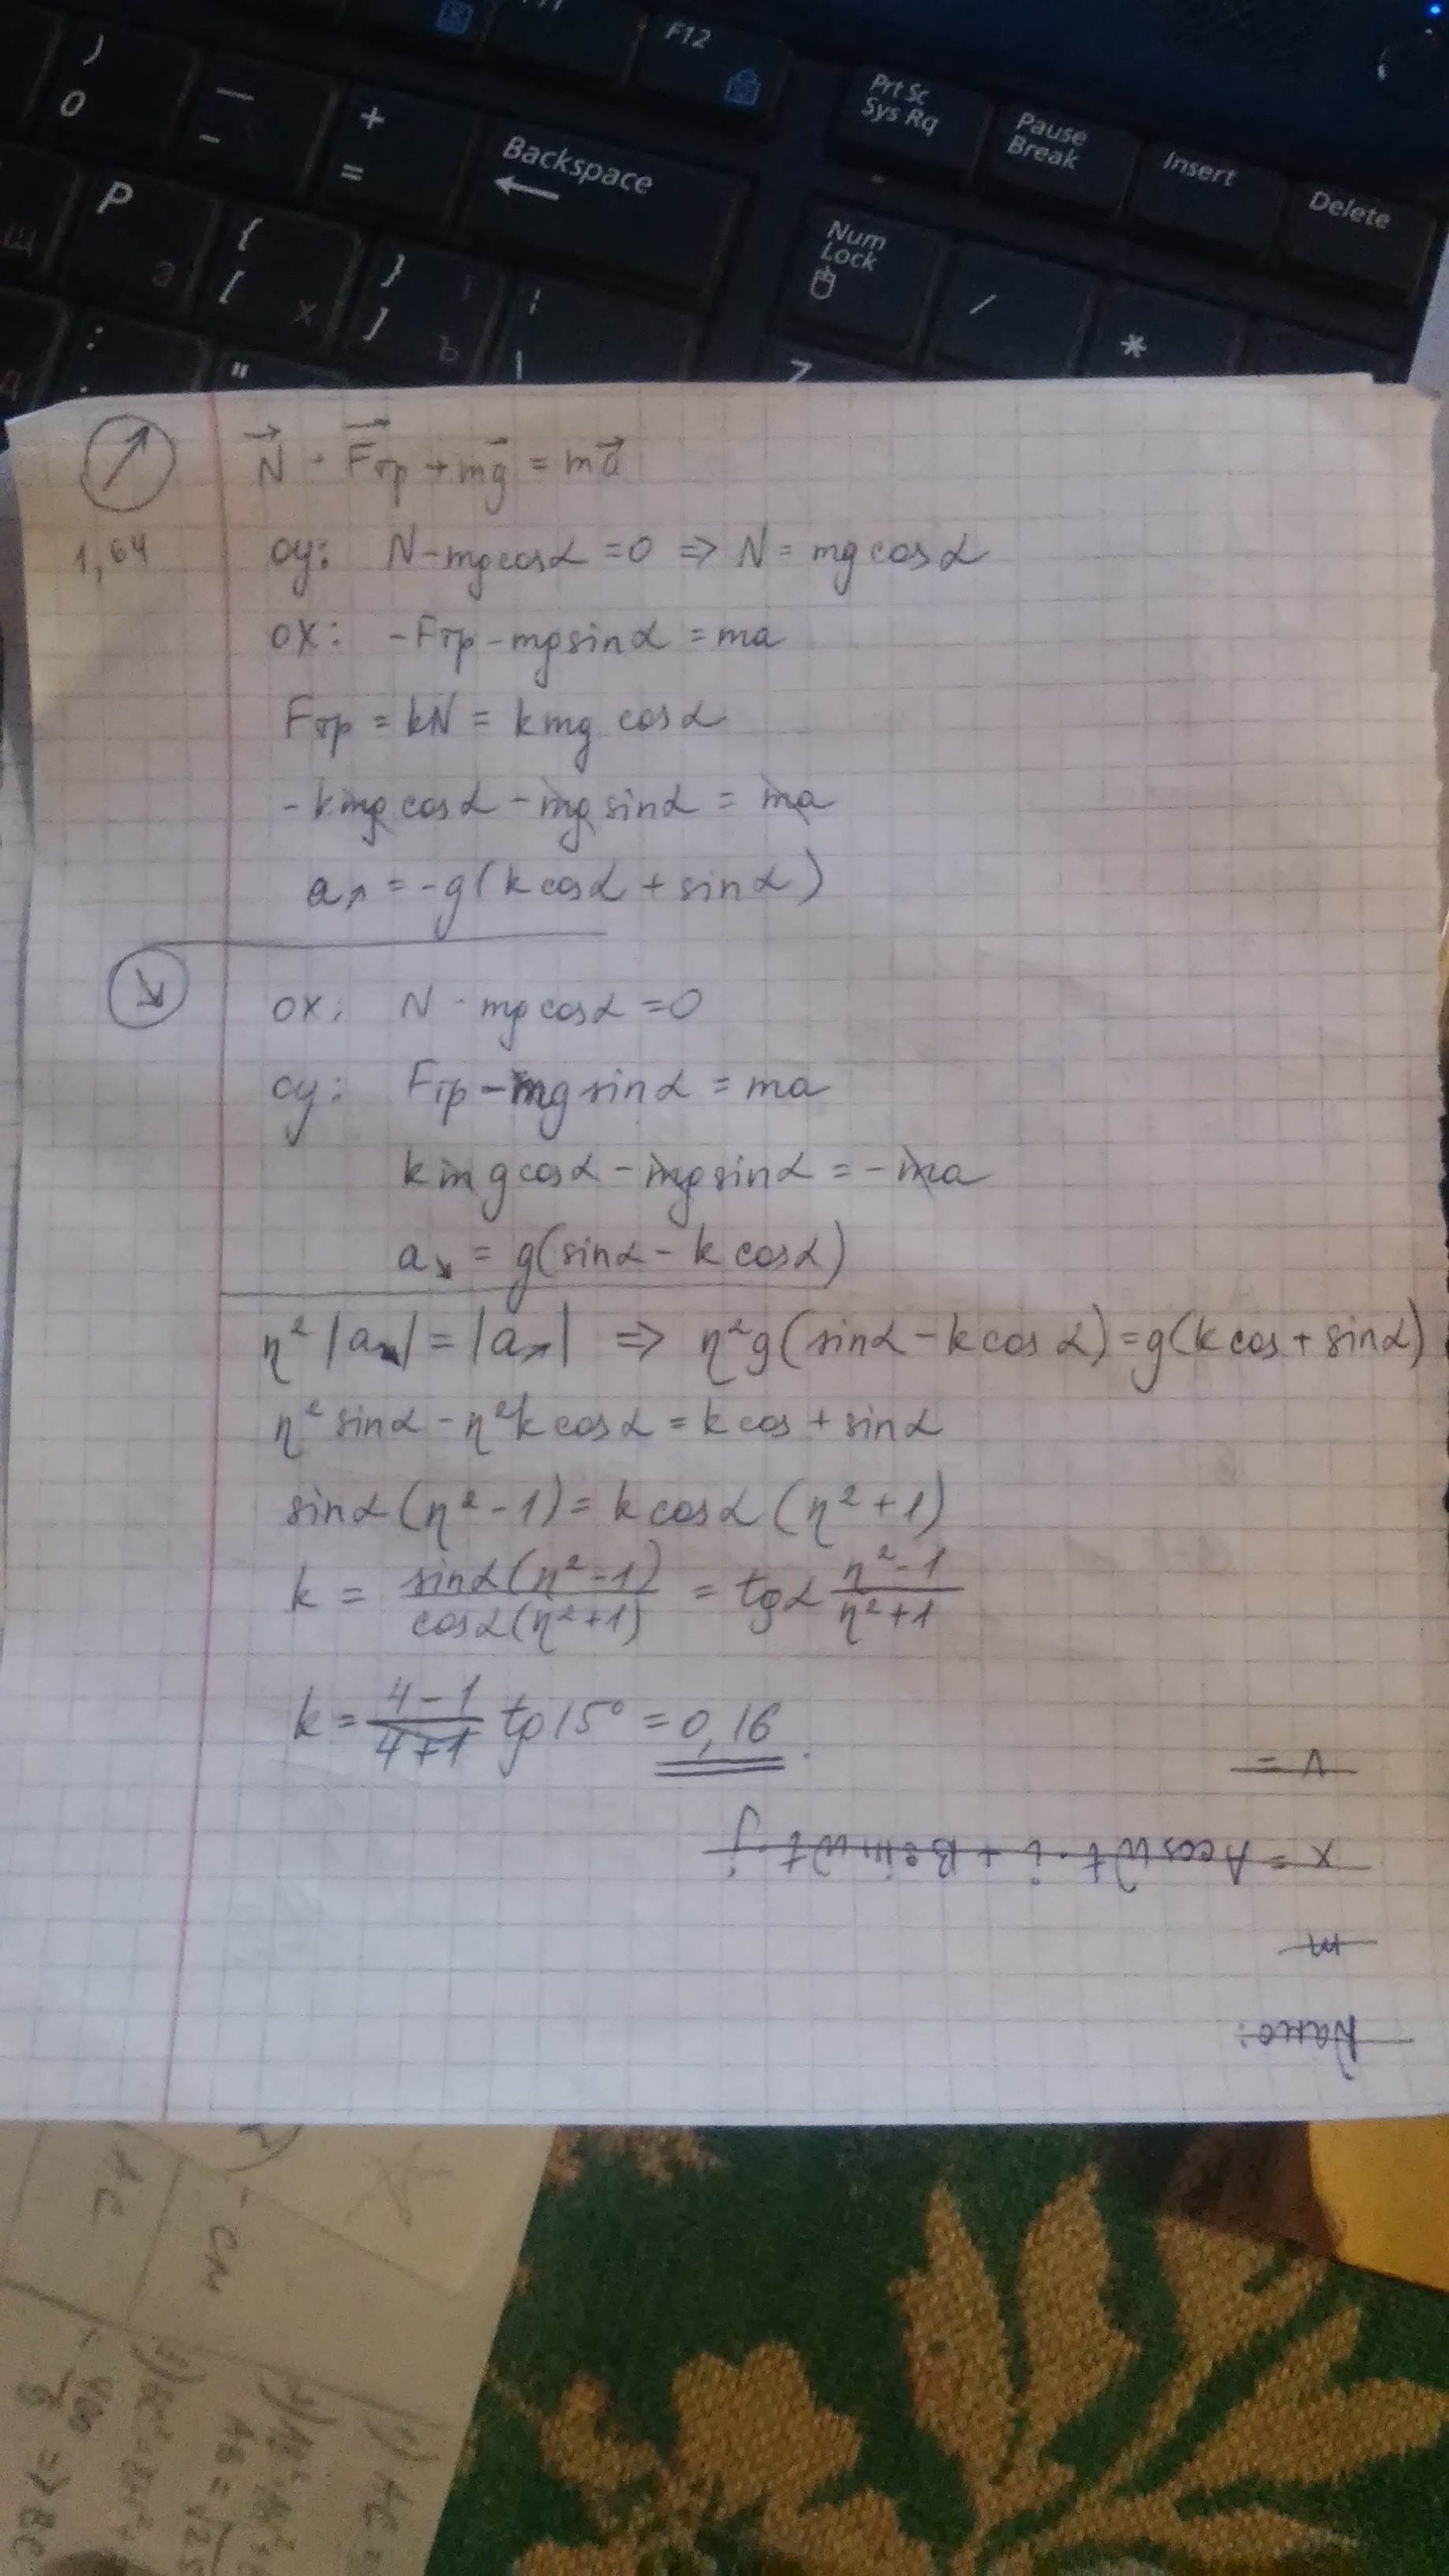 F12
)
0
—
-
+
=
Backspace
Prt Sc
Sys Rq
Pause
Break
Insert
Delete
P
З
{
[
Х
}
]
Ъ
Num
Lock
/
*
:
"
7
N⃗ - F⃗тр + mg⃗ = ma⃗
1,64
oy: N - mg cosα = 0 => N = mg cosα
ox: -Fтр - mg sinα = ma
Fтр = kN = kmg cosα
-kmg cosα - mg sinα = ma
a↗ = -g(k cosα + sinα)
ox: N - mg cosα = 0
oy: Fтр - mg sinα = ma
kmg cosα - mg sinα = -ma
a↘ = g(sinα - k cosα)
η² |a↘| = |a↗| => η²g(sinα - k cosα) = g(k cos + sinα)
η² sinα - η²k cosα = k cos + sinα
sinα(η² - 1) = k cosα(η² + 1)
k = sinα(η² - 1) / cosα(η² + 1) = tgα (η² - 1) / (η² + 1)
k = (4 - 1) / (4 + 1) tg 15° = 0,16.
Дано:
m
x = A cos ωt · i + B sin ωt · j
V =